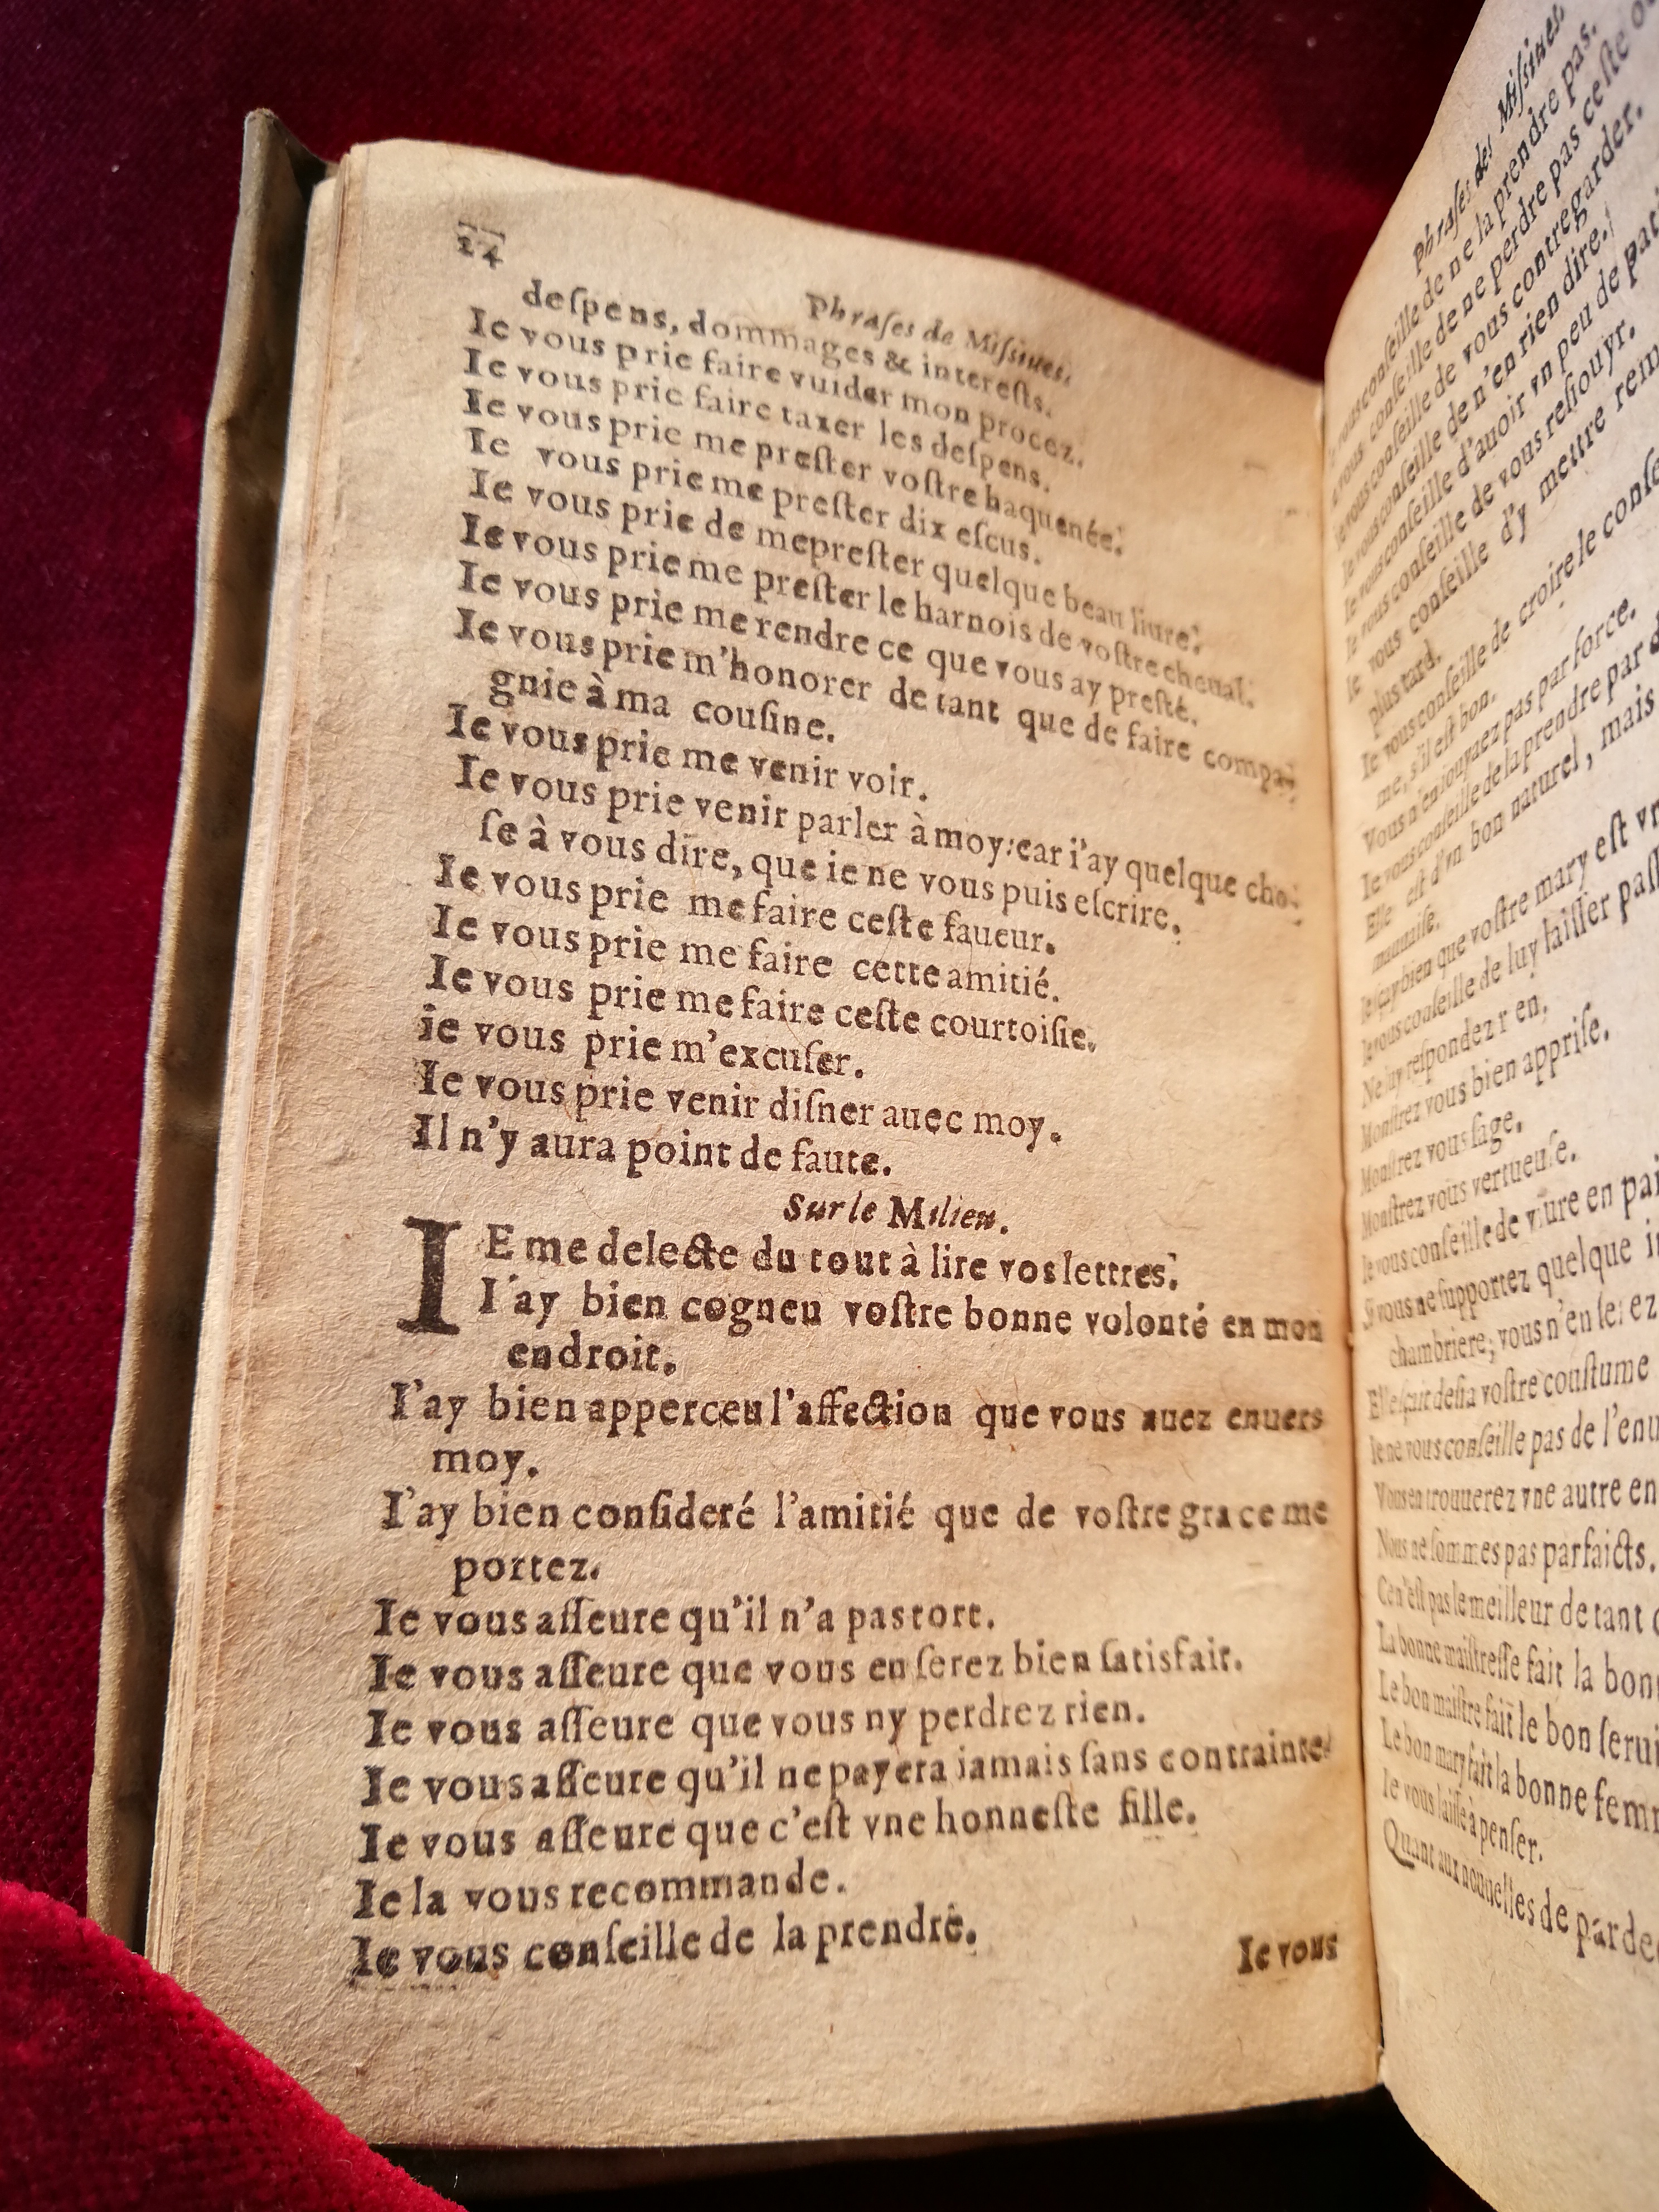 24
Phraſes de Miſsiues.
deſpens, dommages & intereſts.
Ie vous prie faire vuider mon procez.
Ie vous prie faire taxer les deſpens.
Ie vous prie me preſter voſtre haquenée.
Ie vous prie me preſter dix eſcus.
Ie vous prie de mepreſter quelque beau liure.
Ie vous prie me preſter le harnois de voſtre cheual.
Ie vous prie me rendre ce que vous ay preſté.
Ie vous prie m'honorer de tant que de faire compa-
gnie à ma couſine.
Ie vous prie me venir voir.
Ie vous prie venir parler à moy: car i'ay quelque cho-
ſe à vous dire, que ie ne vous puis eſcrire.
Ie vous prie me faire ceſte faueur.
Ie vous prie me faire cette amitié.
Ie vous prie me faire ceſte courtoiſie.
ie vous prie m'excuſer.
Ie vous prie venir diſner auec moy.
Il n'y aura point de faute.
Sur le Milieu.
IE me delecte du tout à lire vos lettres.
I'ay bien cogneu voſtre bonne volonté en mon
endroit.
I'ay bien apperceu l'affection que vous auez enuers
moy.
I'ay bien conſideré l'amitié que de voſtre grace me
portez.
Ie vous aſſeure qu'il n'a pas tort.
Ie vous aſſeure que vous en ſerez bien ſatisfait.
Ie vous aſſeure que vous ny perdrez rien.
Ie vous aſſeure qu'il ne payera iamais ſans contrainte.
Ie vous aſſeure que c'eſt vne honneſte fille.
Ie la vous recommande.
Ie vous conſeille de la prendre.
Ie vous
Phraſes des Miſsiues.
conſeille de ne la prendre pas.
vous conſeille de ne perdre pas ceſte
Ie vous conſeille de vous contregarder.
Ie vous conſeille de n'en rien dire.
Ie vous conſeille d'auoir vn peu de
Ie vous conſeille de vous reſiouyr.
Ie vous conſeille d'y mettre
plus tard.
Ie vous conſeille de croire le
me, s'il eſt bon.
Vous n'en iouyrez pas par force.
Ie vous conſeille de la prendre par
Elle eſt d'vn bon naturel, mais
mauuaiſe.
Ie ſçay bien que voſtre mary eſt
Ie vous conſeille de luy laiſſer
Ne luy reſpondez r en.
Monſtrez vous bien appriſe.
Monſtrez vous ſage.
Monſtrez vous vertueuſe.
Ie vous conſeille de viure en
Si vous ne ſupportez quelque
chambriere, vous n'en ſerez
Elle ſçait deſia voſtre couſtume
Ie ne vous conſeille pas de
Vous en trouuerez vne autre en
Nous ne ſommes pas parfaicts.
Ce n'eſt pas le meilleur de tant
La bonne maiſtreſſe fait la
Le bon maiſtre fait le bon
Le bon mary fait la bonne
Ie vous laiſſe à penſer.
Quant aux nouuelles de par